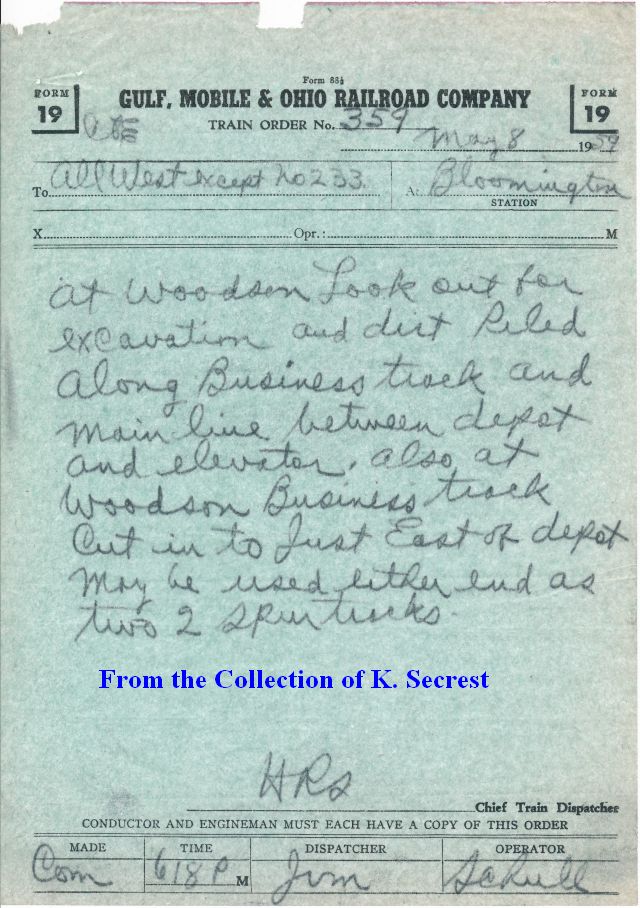 Form 88½
FORM 19
GULF, MOBILE & OHIO RAILROAD COMPANY
FORM 19
TRAIN ORDER No. 359
May 8 1959
To All West except No 233 At Bloomington
STATION
X Opr.: M
at Woodson Look out for
excavation and dirt Piled
along Business track and
main line between depot
and elevator. also at
Woodson Business track
Cut in to Just East of depot
May be used either end as
two 2 spur tracks.
From the Collection of K. Secrest
HRS
Chief Train Dispatcher
CONDUCTOR AND ENGINEMAN MUST EACH HAVE A COPY OF THIS ORDER
MADE TIME DISPATCHER OPERATOR
Com 618 P M Jvm